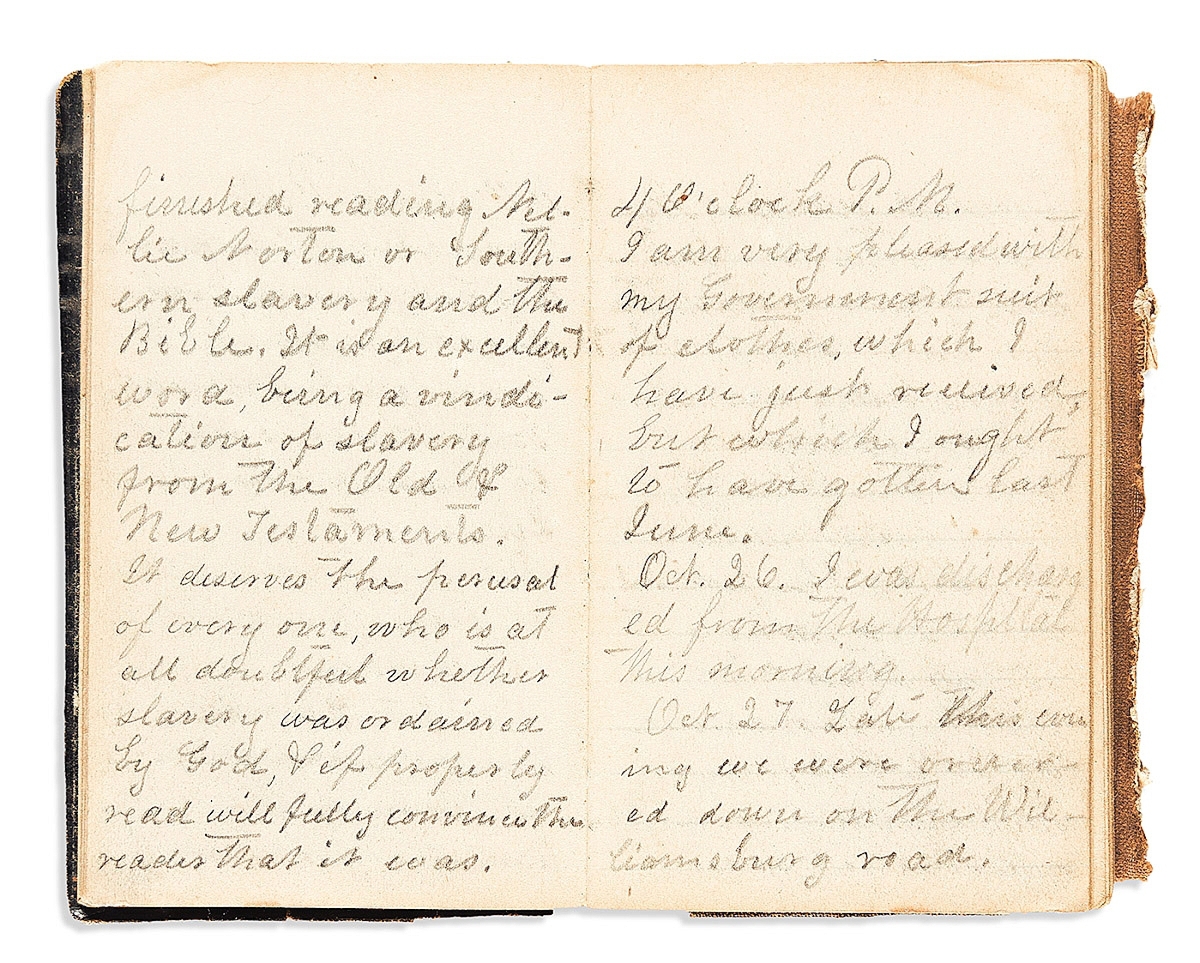 finished reading Nel-
lie Norton or South-
ern slavery and the
Bible. It is an excellent
word, being a vindi-
cation of slavery
from the Old &
New Testaments.
It deserves the perusal
of every one, who is at
all doubtful whether
slavery was ordained
by God, & if properly
read will fully convince the
reader that it was.
4 O'clock P. M.
I am very pleased with
my Government suit
of clothes, which I
have just recieved,
but which I ought
to have gotten last
June.
Oct. 26. I was discharg
ed from the Hospital
this morning.
Oct. 27. Late this even
ing we were order-
ed down on the Wil-
liamsburg road.